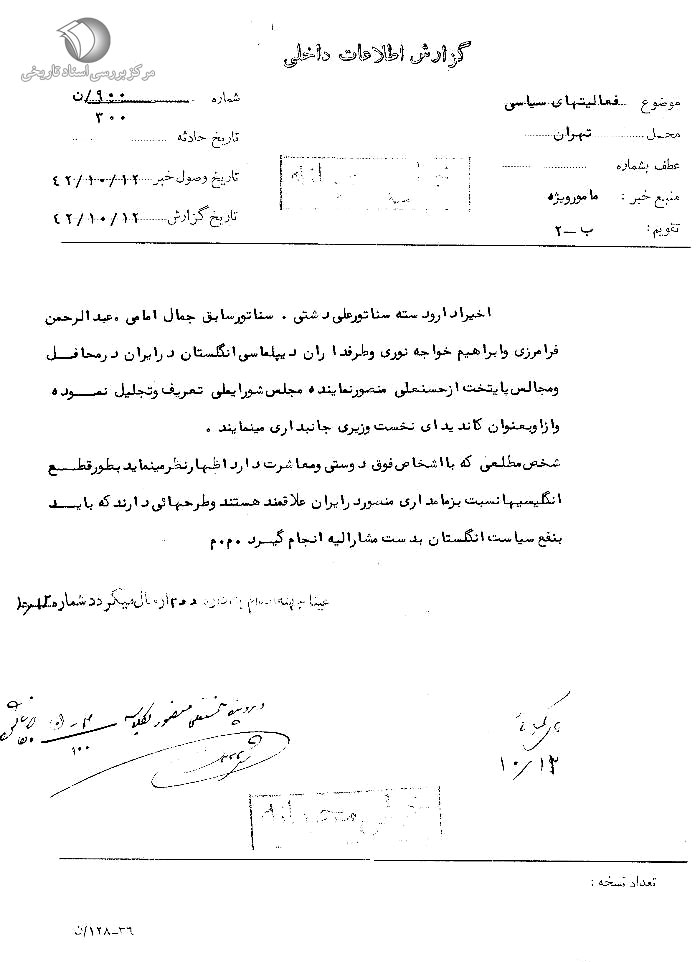 مرکز بررسی اسناد تاریخی
گزارش اطلاعات داخلی
موضوع فعالیتهای سیاسی
محل تهران
عطف بشماره
منبع خبر : مامورویژه
تقویم: ب-۲
شماره ۹۰۰/ن
۳۰۰
تاریخ حادثه
تاریخ وصول خبر ۴۲/۱۰/۱۲
تاریخ گزارش ۴۲/۱۰/۱۲
اخیرادارودسته سناتورعلی دشتی . سناتورسابق جمال امامی ،عبدالرحمن
فرامرزی وابراهیم خواجه نوری وطرفداران دیپلماسی انگلستان درایران درمحافل
ومجالس پایتخت ازحسنعلی منصورنماینده مجلس شورایملی تعریف وتجلیل نموده
وازاوبعنوان کاندیدای نخست وزیری جانبداری مینمایند .
شخص مطلعی که بااشخاص فوق دوستی ومعاشرت دارداظهارنظرمینماید بطورقطع
انگلیسیهانسبت بزمامداری منصوردرایران علاقمند هستند وطرحهائی دارندکه باید
بنفع سیاست انگلستان بدست مشارالیه انجام گیرد م.م.
میگردد شماره
در پرونده حسنعلی منصور
۱۰۰
۱۰/۱۳
خیلی محرمانه
تعداد نسخه :
۳۶-۱۲۸/ن